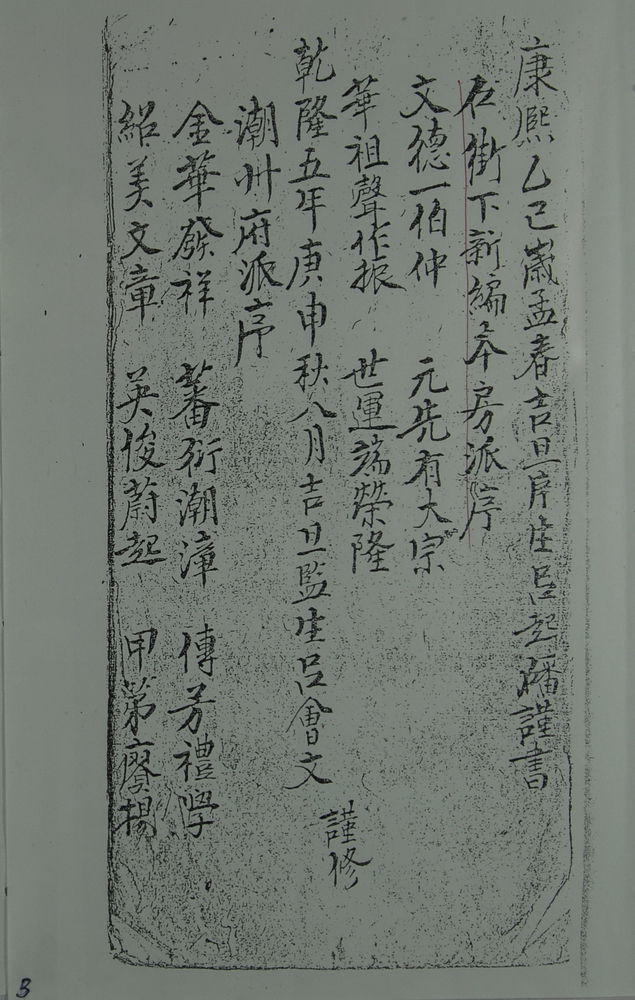 康熙乙巳歲孟春吉旦庠生呂起璠謹書
石街下新編本房派序
文德一伯仲 元先有大宗
華祖聲作振 世運端榮隆
乾隆五年庚申秋八月吉旦監生呂會文
謹修
潮州府派序
金華發祥 蕃衍潮漳 傳芳禮學
紹美文章 英俊蔚起 甲第賡揚
3